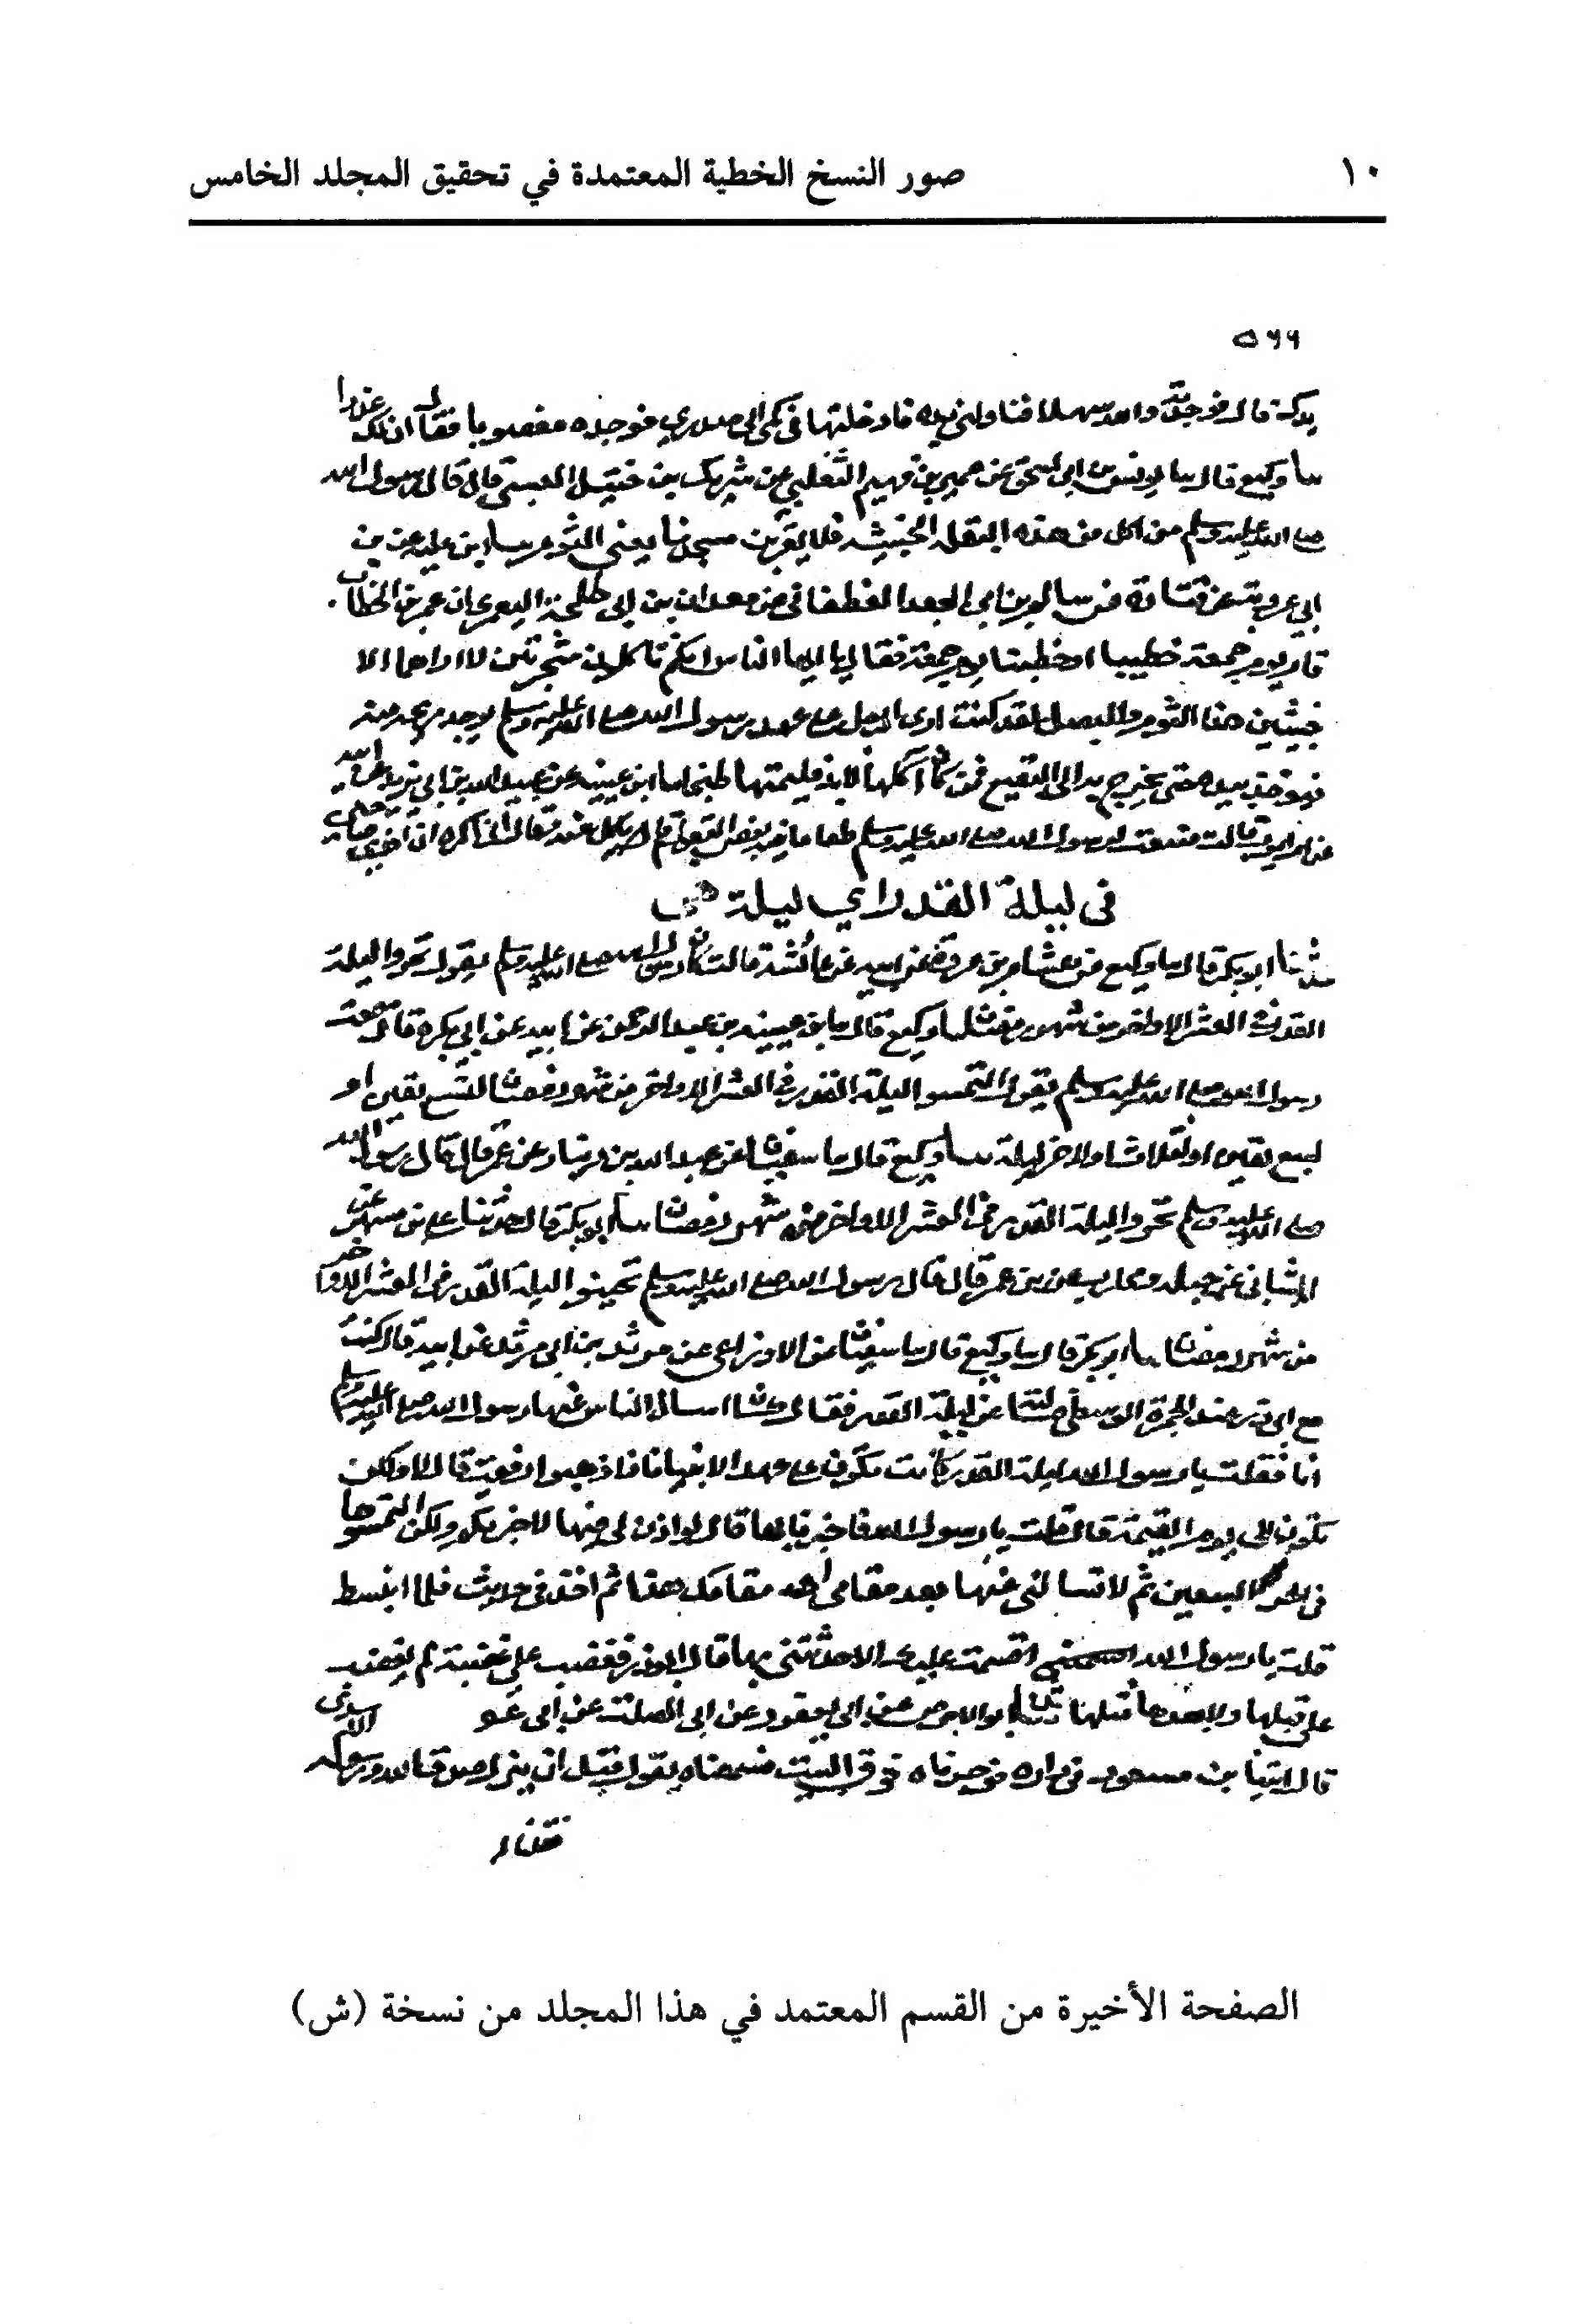 ١٠
صور النسخ الخطية المعتمدة في تحقيق المجلد الخامس
٥٦٦
يدك قال فوجدته والله سهلا فناولني يده فادخلتها في كمي الى صدري فوجده معصوبا فقال ان لك عذرا
وكيع قال يونس بن ابي اسحق عن عمير بن قميم الثعلبي عن شريك بن حنبل العبسي قال قال رسول الله
صلى الله عليه وسلم من اكل من هذه البقلة الخبيثة فلا يقربن مسجدنا يعني الثوم ابن علية عن بن
ابي عروبة عن قتادة عن سالم بن ابي الجعد الغطفاني عن معدان بن ابي طلحة اليعمري ان عمر بن الخطاب
قام يوم جمعة خطيبا او خطبنا يوم جمعة فقال يا ايها الناس انكم تاكلون شجرتين لا اراهما الا
خبيثين هذا الثوم والبصل لقد كنت ارى الرجل على عهد رسول الله صلى الله عليه وسلم يوجد ريحه منه
فيوخذ بيده حتى يخرج به الى البقيع فمن كان اكلها لا بد فليمتها طبخا ابن عيينه عن عبيد الله بن ابي يزيد عن ابيه
عن ام ايوب قالت صنعت لرسول الله صلى الله عليه وسلم طعاما فيه بعض البقول فلم ياكل منه وقال اني اكره ان اوذي صاحبي
في ليلة القدر اي ليلة هي
حدثنا ابو بكر قال وكيع عن هشام بن عروة عن ابيه عن عائشة قالت كان رسول الله صلى الله عليه وسلم يقول تحروا ليلة
القدر في العشر الاواخر من شهر رمضان وكيع قال عيينه بن عبد الرحمن عن ابيه عن ابي بكرة قال سمعت
رسول الله صلى الله عليه وسلم يقول التمسوا ليلة القدر في العشر الاواخر من شهر رمضان لتسع بقين او
لسبع بقين او لثلاث او لاخر ليلة وكيع قال سفيان عن عبد الله بن دينار عن عمر قال قال رسول الله
صلى الله عليه وسلم تحروا ليلة القدر في العشر الاواخر من شهر رمضان ابو بكر قال حدثنا علي بن مسهر عن
الشيباني عن جبلة ومحارب عن بن عمر قال قال رسول الله صلى الله عليه وسلم تحينوا ليلة القدر في العشر الاواخر
من شهر رمضان ابو بكر قال وكيع قال سفيان عن الاوزاعي عن مرثد بن ابي مرثد عن ابيه قال كنت
مع ابي ذر عند الجمرة الوسطى عن ليلة القدر فقال كان اسال الناس عنها رسول الله صلى الله عليه وسلم
انا فقلت يا رسول الله ليلة القدر كانت تكون على عهد الانبياء فاذا ذهبوا رفعت قال لا ولكن
تكون الى يوم القيمة قال قلت يا رسول الله فاخبرنا بها قال لو اذن لي فيها لاخبرتكم ولكن التمسوها
في السبعين ثم لا تسالني عنها بعد مقامي مقامك هذا ثم اخذ في حديث فلما انبسط
قلت يا رسول الله اقسمت عليك الا حدثتني بها قال ابو ذر فغضب علي غضبة لم يغضب
علي قبلها ولا بعدها مثلها ابو الاحوص عن ابي يعفور عن ابي الصلت عن ابي عقرب الاسدي
قال اتينا بن مسعود في داره فوجدناه فوق البيت فسمعناه يقول قبل ان ينزل صدق الله ورسوله
فقلنا
الصفحة الأخيرة من القسم المعتمد في هذا المجلد من نسخة (ش)